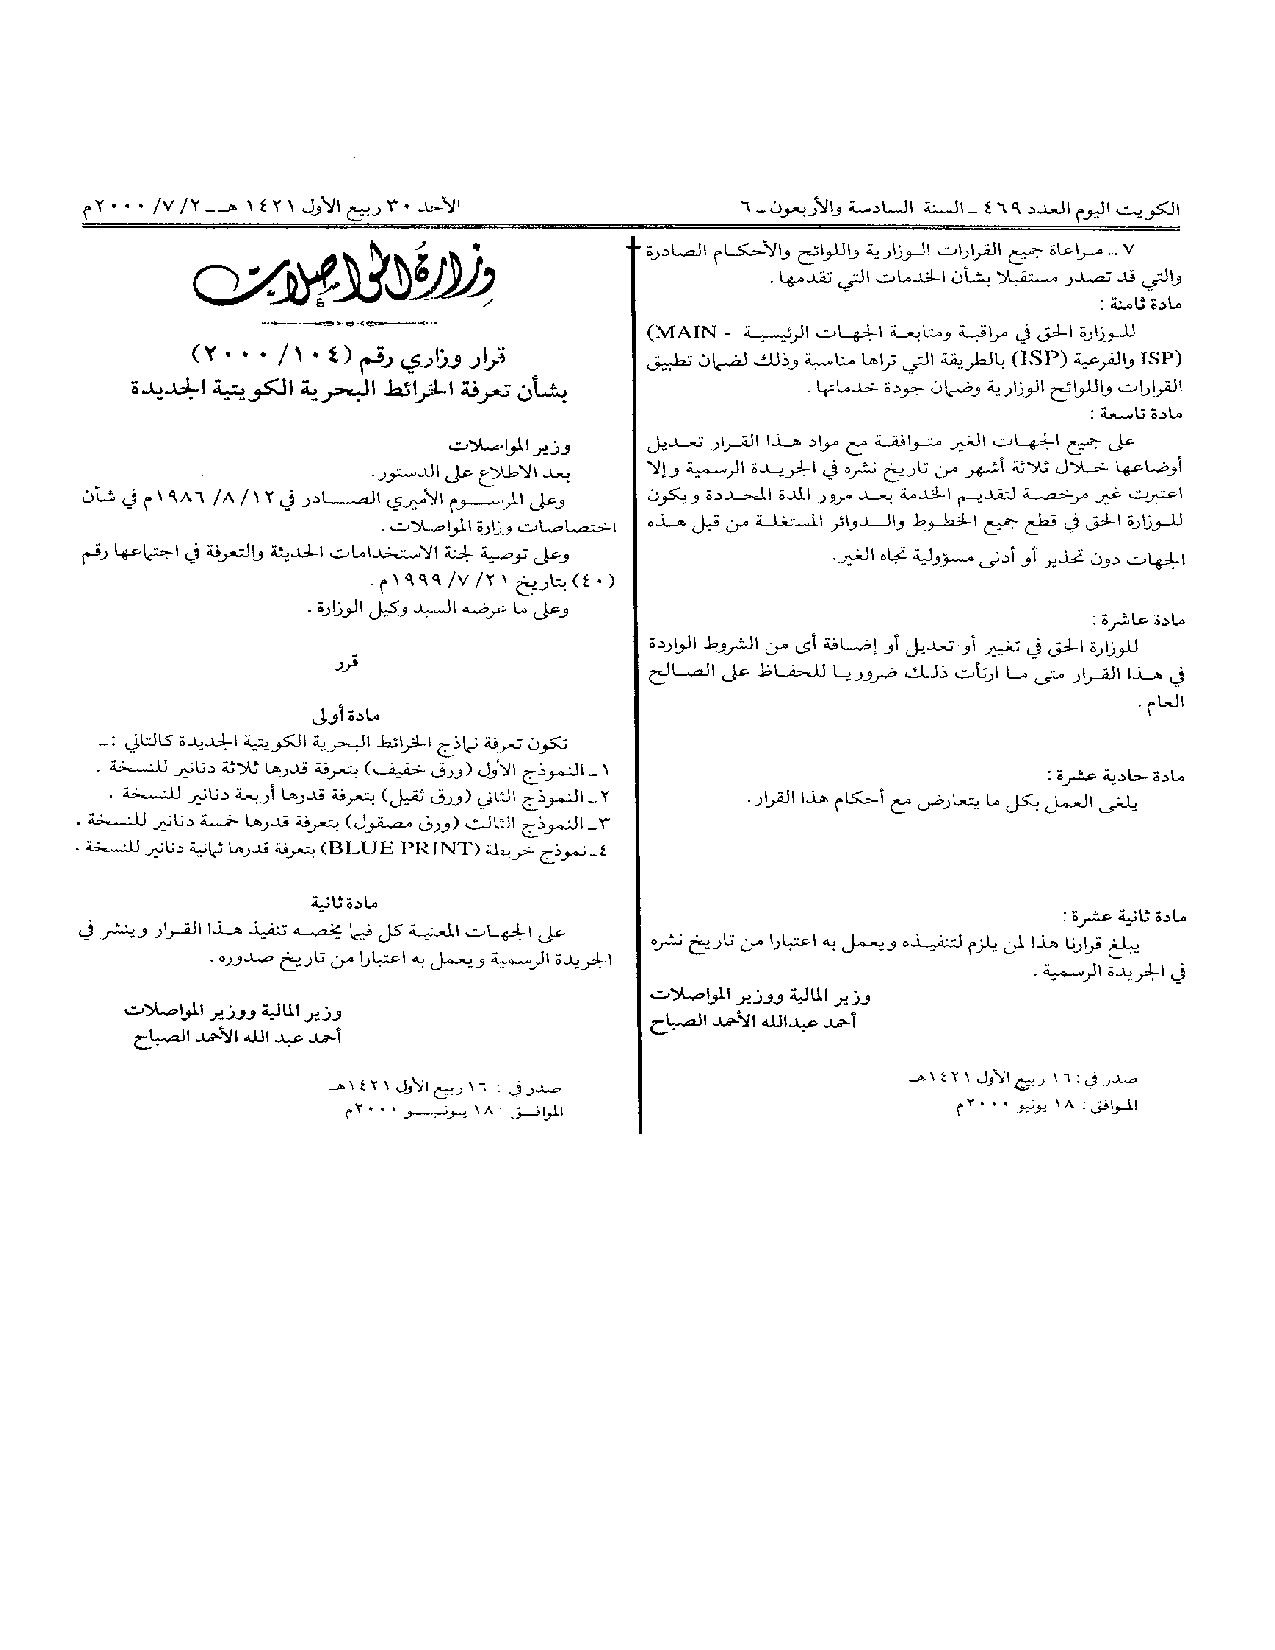 الكويت اليوم العدد ٤٦٩ ـ السنة السادسة والأربعون ـ ٦
الأحد ٣٠ ربيع الأول ١٤٢١ هـ ـ ٢/ ٧/ ٢٠٠٠م
٧ ـ مراعاة جميع القرارات الوزارية واللوائح والأحكام الصادرة
والتي قد تصدر مستقبلا بشأن الخدمات التي تقدمها .
مادة ثامنة :
للوزارة الحق في مراقبة ومتابعة الجهات الرئيسية (MAIN -
ISP) والفرعية (ISP) بالطريقة التي تراها مناسبة وذلك لضمان تطبيق
القرارات واللوائح الوزارية وضمان جودة خدماتها .
مادة تاسعة :
على جميع الجهات الغير متوافقة مع مواد هذا القرار تعديل
أوضاعها خلال ثلاثة أشهر من تاريخ نشره في الجريدة الرسمية وإلا
اعتبرت غير مرخصة لتقديم الخدمة بعد مرور المدة المحددة ويكون
للوزارة الحق في قطع جميع الخطوط والدوائر المستغلة من قبل هذه
الجهات دون تحذير أو أدنى مسؤولية تجاه الغير.
مادة عاشرة :
للوزارة الحق في تغيير أو تعديل أو إضافة أى من الشروط الواردة
في هذا القرار متى ما ارتأت ذلك ضروريا للحفاظ على الصالح
العام .
مادة حادية عشرة :
يلغى العمل بكل ما يتعارض مع أحكام هذا القرار .
مادة ثانية عشرة :
يبلغ قرارنا هذا لمن يلزم لتنفيذه ويعمل به اعتبارا من تاريخ نشره
في الجريدة الرسمية .
وزير المالية ووزير المواصلات
أحمد عبدالله الأحمد الصباح
صدر في : ١٦ ربيع الأول ١٤٢١هـ
الموافق : ١٨ يونيو ٢٠٠٠م
وزارة المواصلات
قرار وزاري رقم (١٠٤/ ٢٠٠٠)
بشأن تعرفة الخرائط البحرية الكويتية الجديدة
وزير المواصلات
بعد الاطلاع على الدستور .
وعلى المرسوم الأميري الصادر في ١٢/ ٨/ ١٩٨٦م في شأن
اختصاصات وزارة المواصلات .
وعلى توصية لجنة الاستخدامات الحديثة والتعرفة في اجتماعها رقم
(٤٠) بتاريخ ٢١/ ٧/ ١٩٩٩م .
وعلى ما عرضه السيد وكيل الوزارة .
قرر
مادة أولى
تكون تعرفة نماذج الخرائط البحرية الكويتية الجديدة كالتالي :ـ
١ ـ النموذج الأول (ورق خفيف) بتعرفة قدرها ثلاثة دنانير للنسخة .
٢ ـ النموذج الثاني (ورق ثقيل) بتعرفة قدرها أربعة دنانير للنسخة .
٣ ـ النموذج الثالث (ورق مصقول) بتعرفة قدرها خمسة دنانير للنسخة .
٤ ـ نموذج خريطة (BLUE PRINT) بتعرفة قدرها ثمانية دنانير للنسخة .
مادة ثانية
على الجهات المعنية كل فيما يخصه تنفيذ هذا القرار وينشر في
الجريدة الرسمية ويعمل به اعتبارا من تاريخ صدوره .
وزير المالية ووزير المواصلات
أحمد عبد الله الأحمد الصباح
صدر في : ١٦ ربيع الأول ١٤٢١هـ
الموافق : ١٨ يونيو ٢٠٠٠م